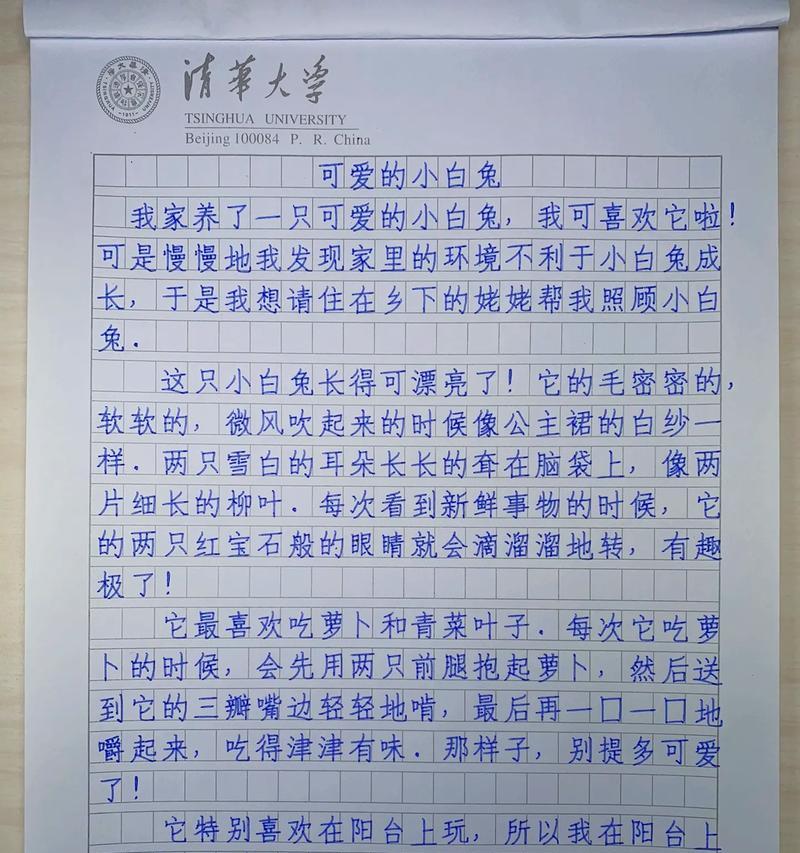 清华大学
TSINGHUA UNIVERSITY
Beijing 100084 P. R. China
可爱的小白兔
我家养了一只可爱的小白兔，我可喜欢它啦！
可是慢慢地我发现家里的环境不利于小白兔成
长，于是我想请住在乡下的姥姥帮我照顾小白
兔.
这只小白兔长得可漂亮了！它的毛密密的，
软软的，微风吹起来的时候像公主裙的白纱一
样.两只雪白的耳朵长长的耷在脑袋上，像两
片细长的柳叶.每次看到新鲜事物的时候，它
的两只红宝石般的眼睛就会滴溜溜地转，有趣
极了！
它最喜欢吃萝卜和青菜叶子.每次它吃萝
卜的时候，会先用两只前腿抱起萝卜，然后送
到它的三瓣嘴边轻轻地啃，最后再一口一口地
嚼起来，吃得津津有味.那样子，别提多可爱
了！
它特别喜欢在阳台上玩，所以我在阳台上